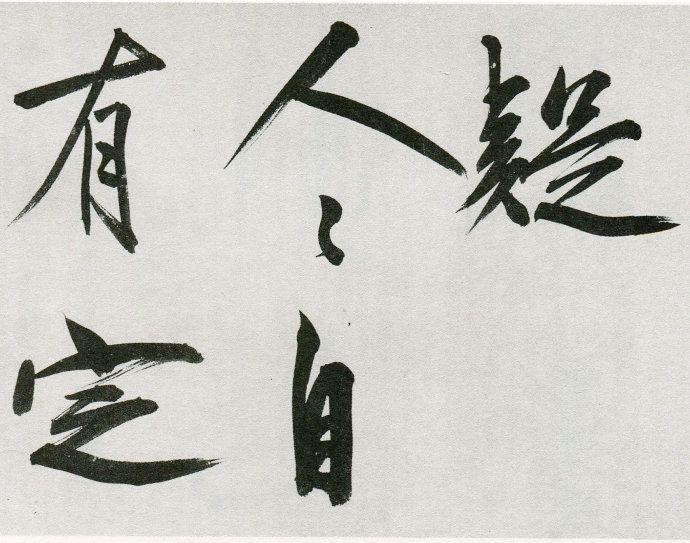 疑
人〻自
有定